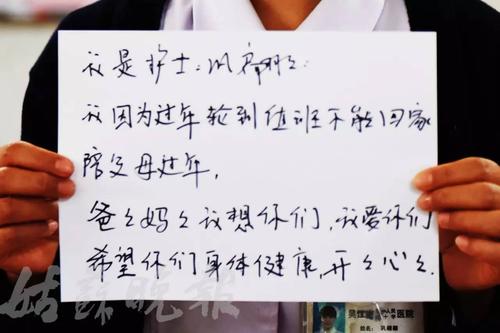 我是护士：
我因为过年轮到值班不能回家
陪父母过年，
爸々妈々我想你们，我爱你们
希望你们身体健康，开々心々.
姑蘇晚報
医院
姓名：